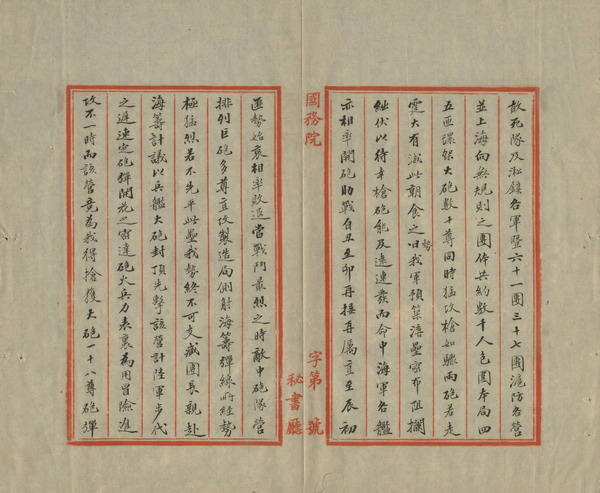 敢死隊及淞鎮各軍暨六十一團三十七團滬防各營
並上海向無規則之團体共約數千人包圍本局四
五匝環架大砲數十尊同時猛攻槍如驟雨砲若走
霆大有滅此朝食之勢我軍預築濤壘密布阻攔
蛇伏以待專槍砲能及遠連發而命中海軍各艦
亦相率開砲助戰自丑至卯再接再厲直至辰初
匪勢始衰相率敗退當戰鬥最烈之時敵中砲隊營
排列巨砲多尊直攻製造局側射海籌彈綠所經勢
極猛烈若不先平此壘我勢終不可支臧團長親赴
海籌計議以兵艦大砲封頂先擊該營計陸軍步代
之遲速定砲彈開花之密達砲火兵力表裏為用冒險進
攻不一時而該營竟為我得搶獲大砲一十八尊砲彈
國務院
字第 號
秘書廳